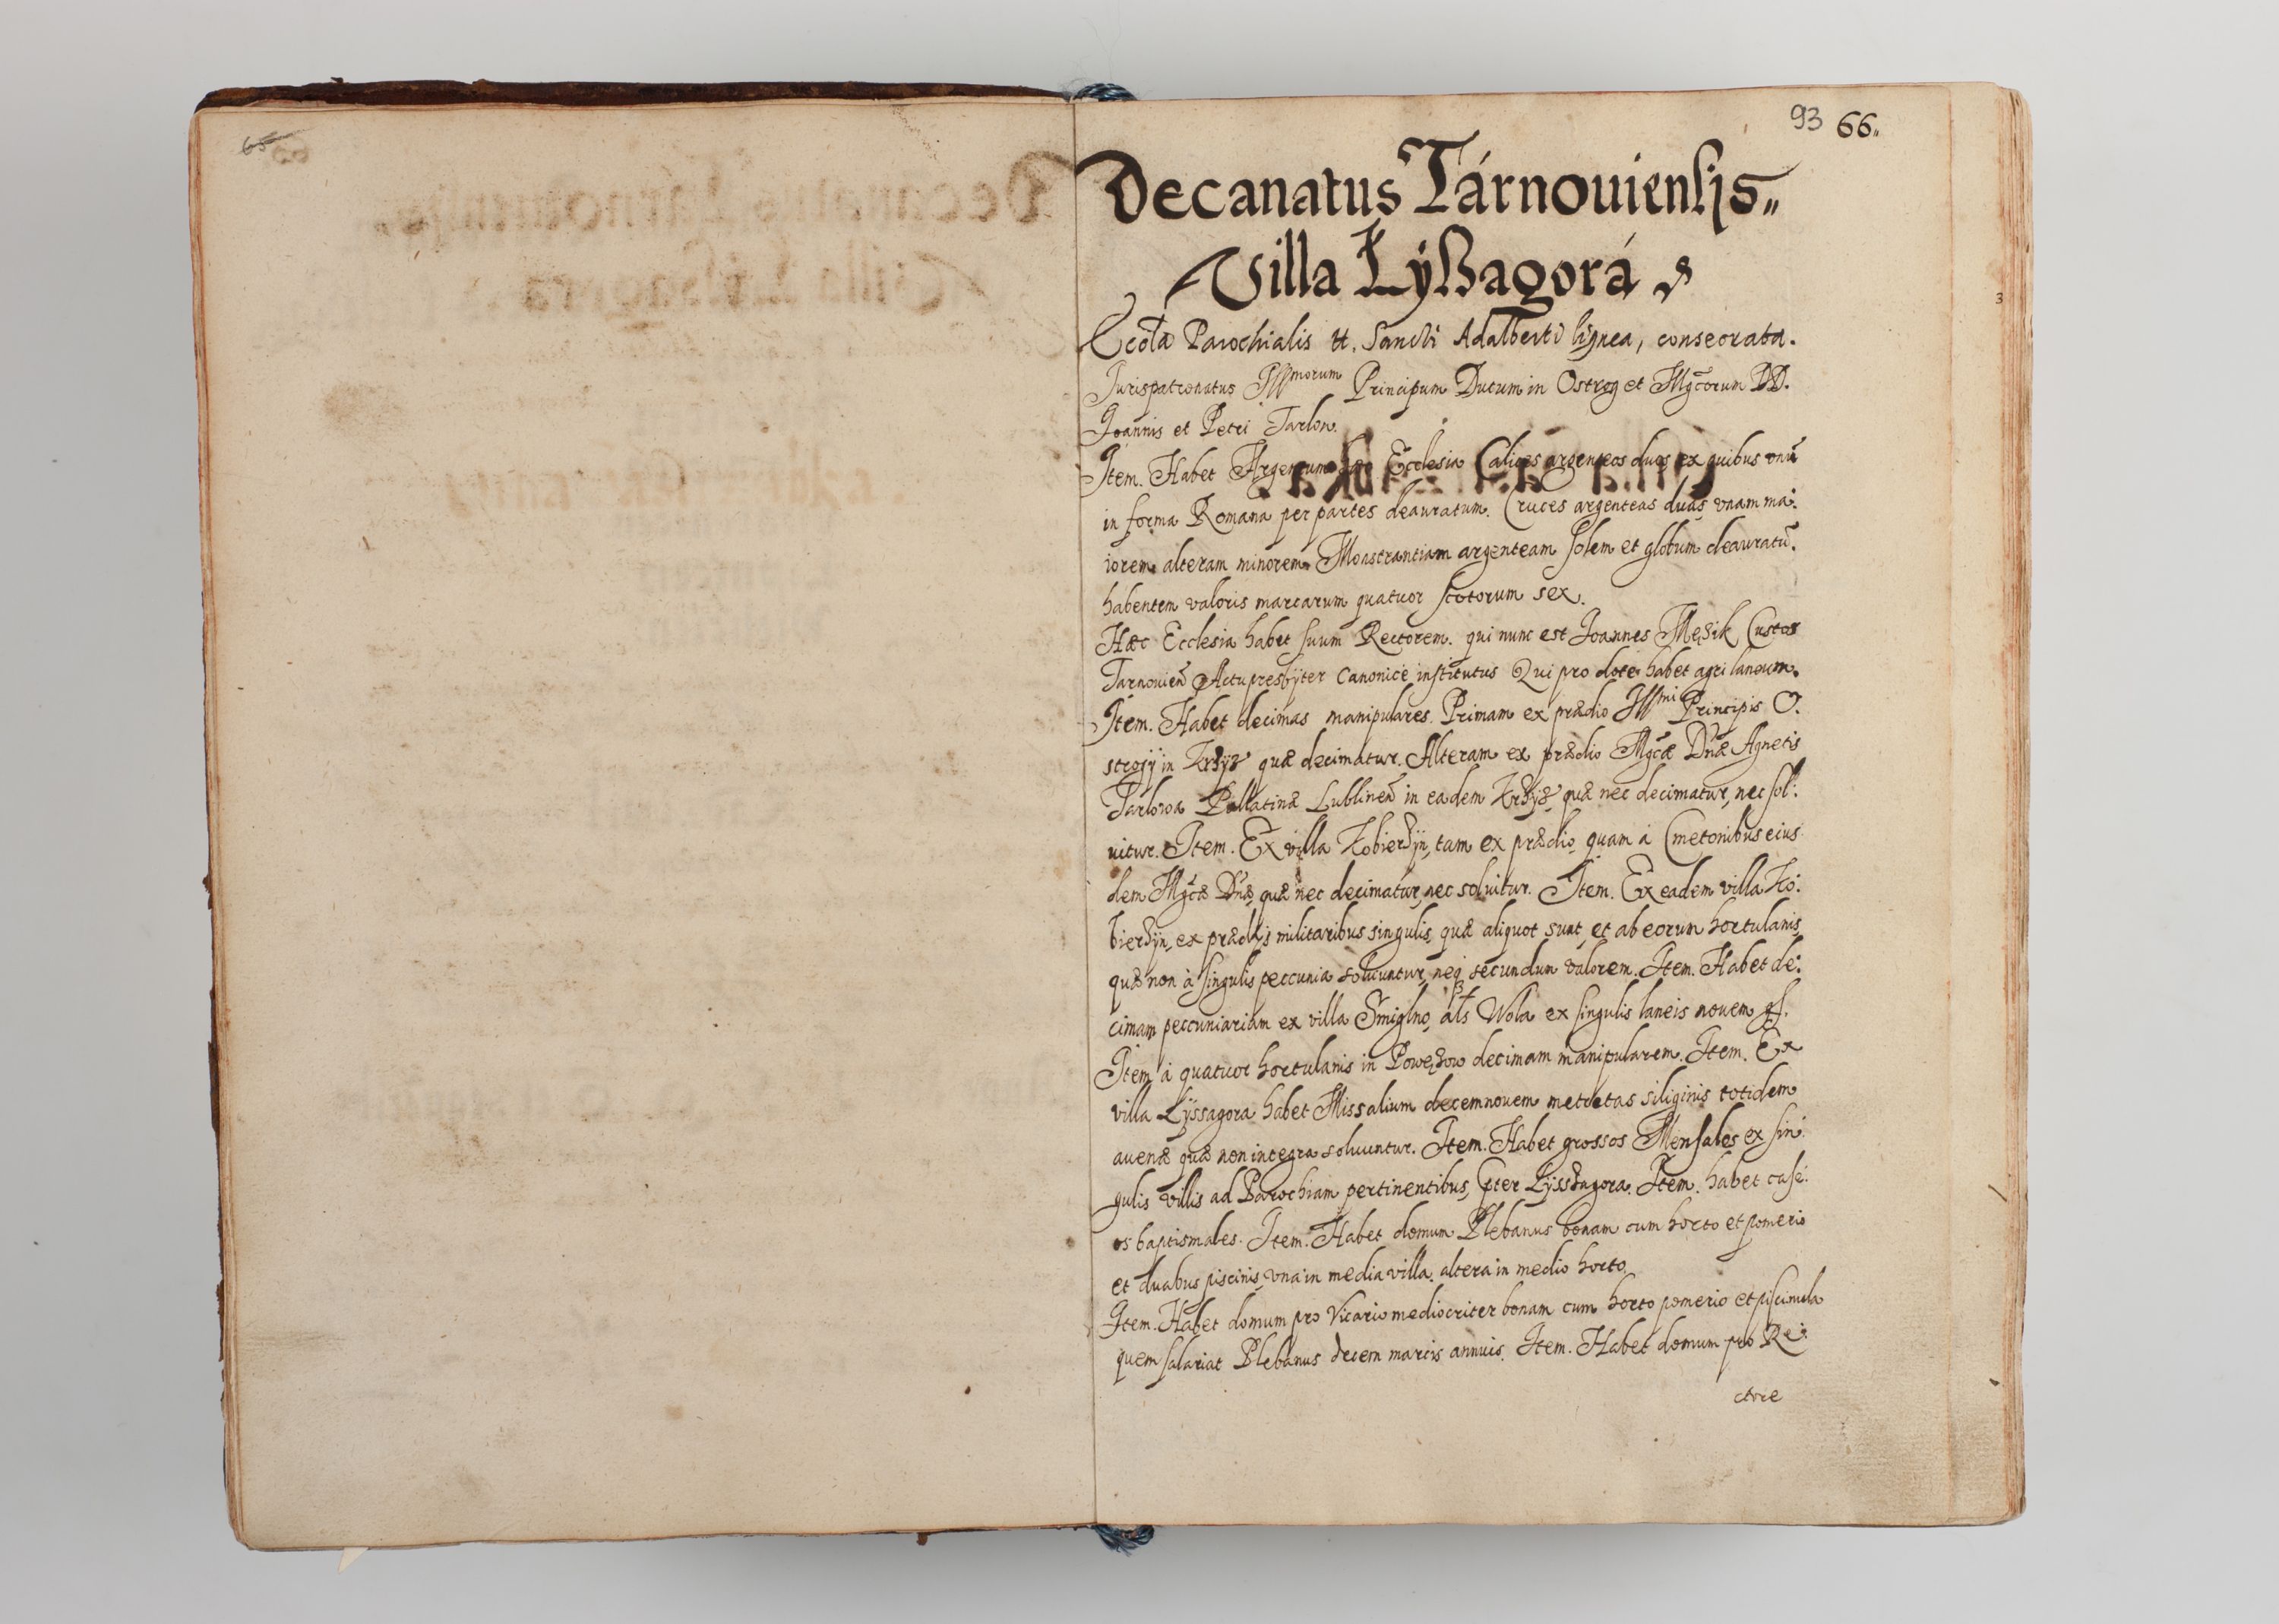 65
93 66.
Decanatus Tárnouiensis
Villa Lÿssagorá
Eccla Parochialis tt. Sancti Adalberti lignea, consecrata.
Jurispatronatus Illmorum Principum Ducum in Ostrog et Mgcorum DD.
Joannis et Petri Tarlon.
Item. Habet Argentum Ecclesia Calices argenteos duos ex quibus vnũ
in forma Romana per partes deauratum. Cruces argenteas duas vnam ma:
iorem alteram minorem Monstrantiam argenteam solem et globum deauratũ.
habentem valoris marcarum quatuor scotorum sex.
Hæc Ecclesia habet suum Rectorem. qui nunc est Joannes Męzik Custos
Tarnouień Actu presbÿter Canonice institutus Qui pro dote habet agri laneum.
Item. Habet decimas manipulares. Primam ex prædio Illmi Principis O:
strogÿ in Krzÿż quæ decimatur. Alteram ex prædio Mgcæ Dnæ Agnetis
Tarlowa Pallatinæ Lublineń in eadem Krzÿż, quæ nec decimatur, nec sol:
uitur. Item. Ex villa Kobierzÿn, tam ex prædio, quam á Cmetonibus eius
dem Mgcæ Dnæ, quæ nec decimatur, nec soluitur. Item. Ex eadem villa Ko:
bierzÿn, ex prædijs militaribus singulis, quæ aliquot sunt, et ab eorum hortulanis,
quæ non à singulis peccunia soluuntur, neq secundum valorem. Item. Habet de:
cimam peccuniariam ex villa Smiglno, als Wola ex singulis laneis nouem gs.
Item á quatuor hortulanis in Powęzow decimam manipularem. Item. Ex
villa Lÿssagora habet Missalium decemnouem metretas siliginis totidem
auenæ quæ non integra soluuntur. Item. Habet grossos Mensales ex sin:
gulis villis ad Parochiam pertinentibus, pter Lÿssagora. Item. habet case:
os baptismales. Item. Habet domum Plebanus bonam cum horto et pomerio
et duabus piscinis, vna in media villa, altera in medio horto.
Item. Habet domum pro Vicario mediocriter bonam cum horto pomerio et piscinula
quem salariat Plebanus decem marcis annuis. Item. Habet domum pro Re:
ctore
3